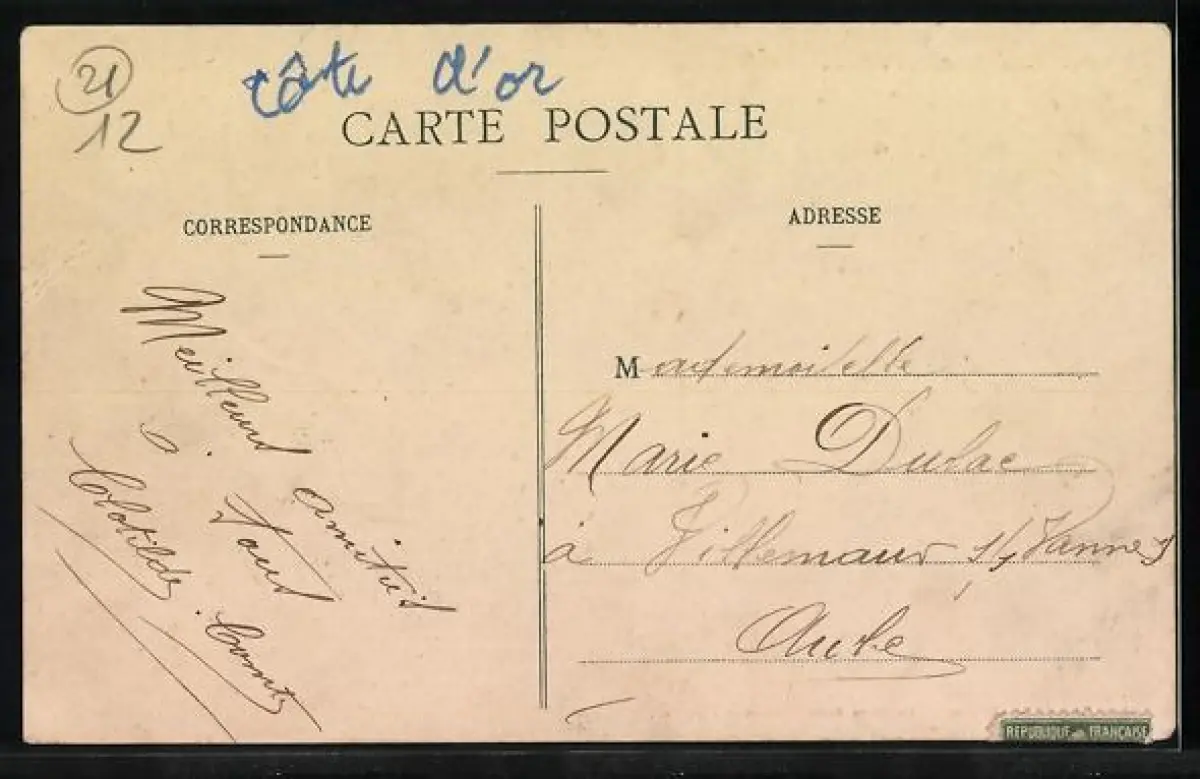 21
12
Côte d'or
CARTE POSTALE
CORRESPONDANCE
ADRESSE
Meilleurs amitiés
à Tous
Clotilde Comte
Mademoiselle
Marie Dulac
à Villemaur s/ Vannes
Aube
REPUBLIQUE FRANÇAISE